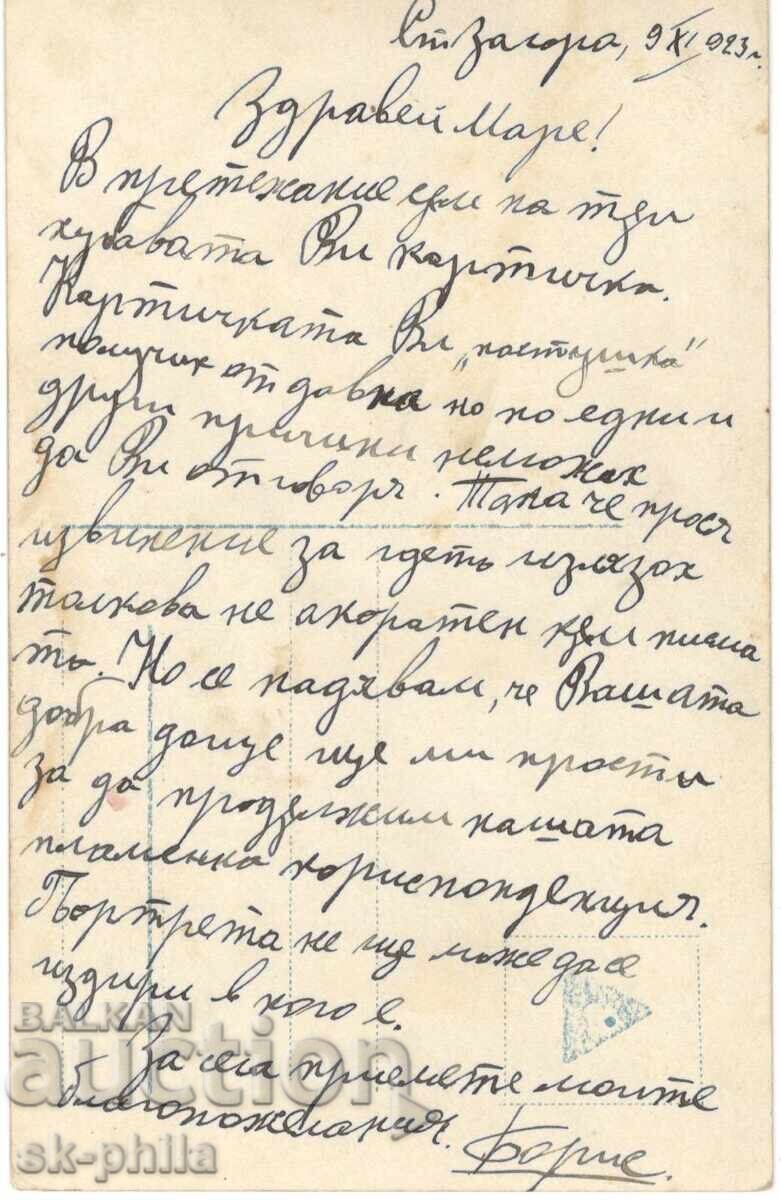 Ст Загора, 9 XI 923 г.
Здравей Маре!
В притежание съм на тъй
хубавата Ви картичка.
Картичката Ви „пастушка"
получих от давна но по едни и
други причини неможах
да Ви отговоря. Така че прося
извинение за гдето излязох
толкова не акоратен към писма
та. Но се надявам, че Вашата
добра душе ще ми прости
за да продължим нашата
пламенна кориспонденция.
Портрета не ще може да се
издири в кого е.
За сега приемете моите
благопожелания.
Борис.
BALKAN
auction
sk-phila